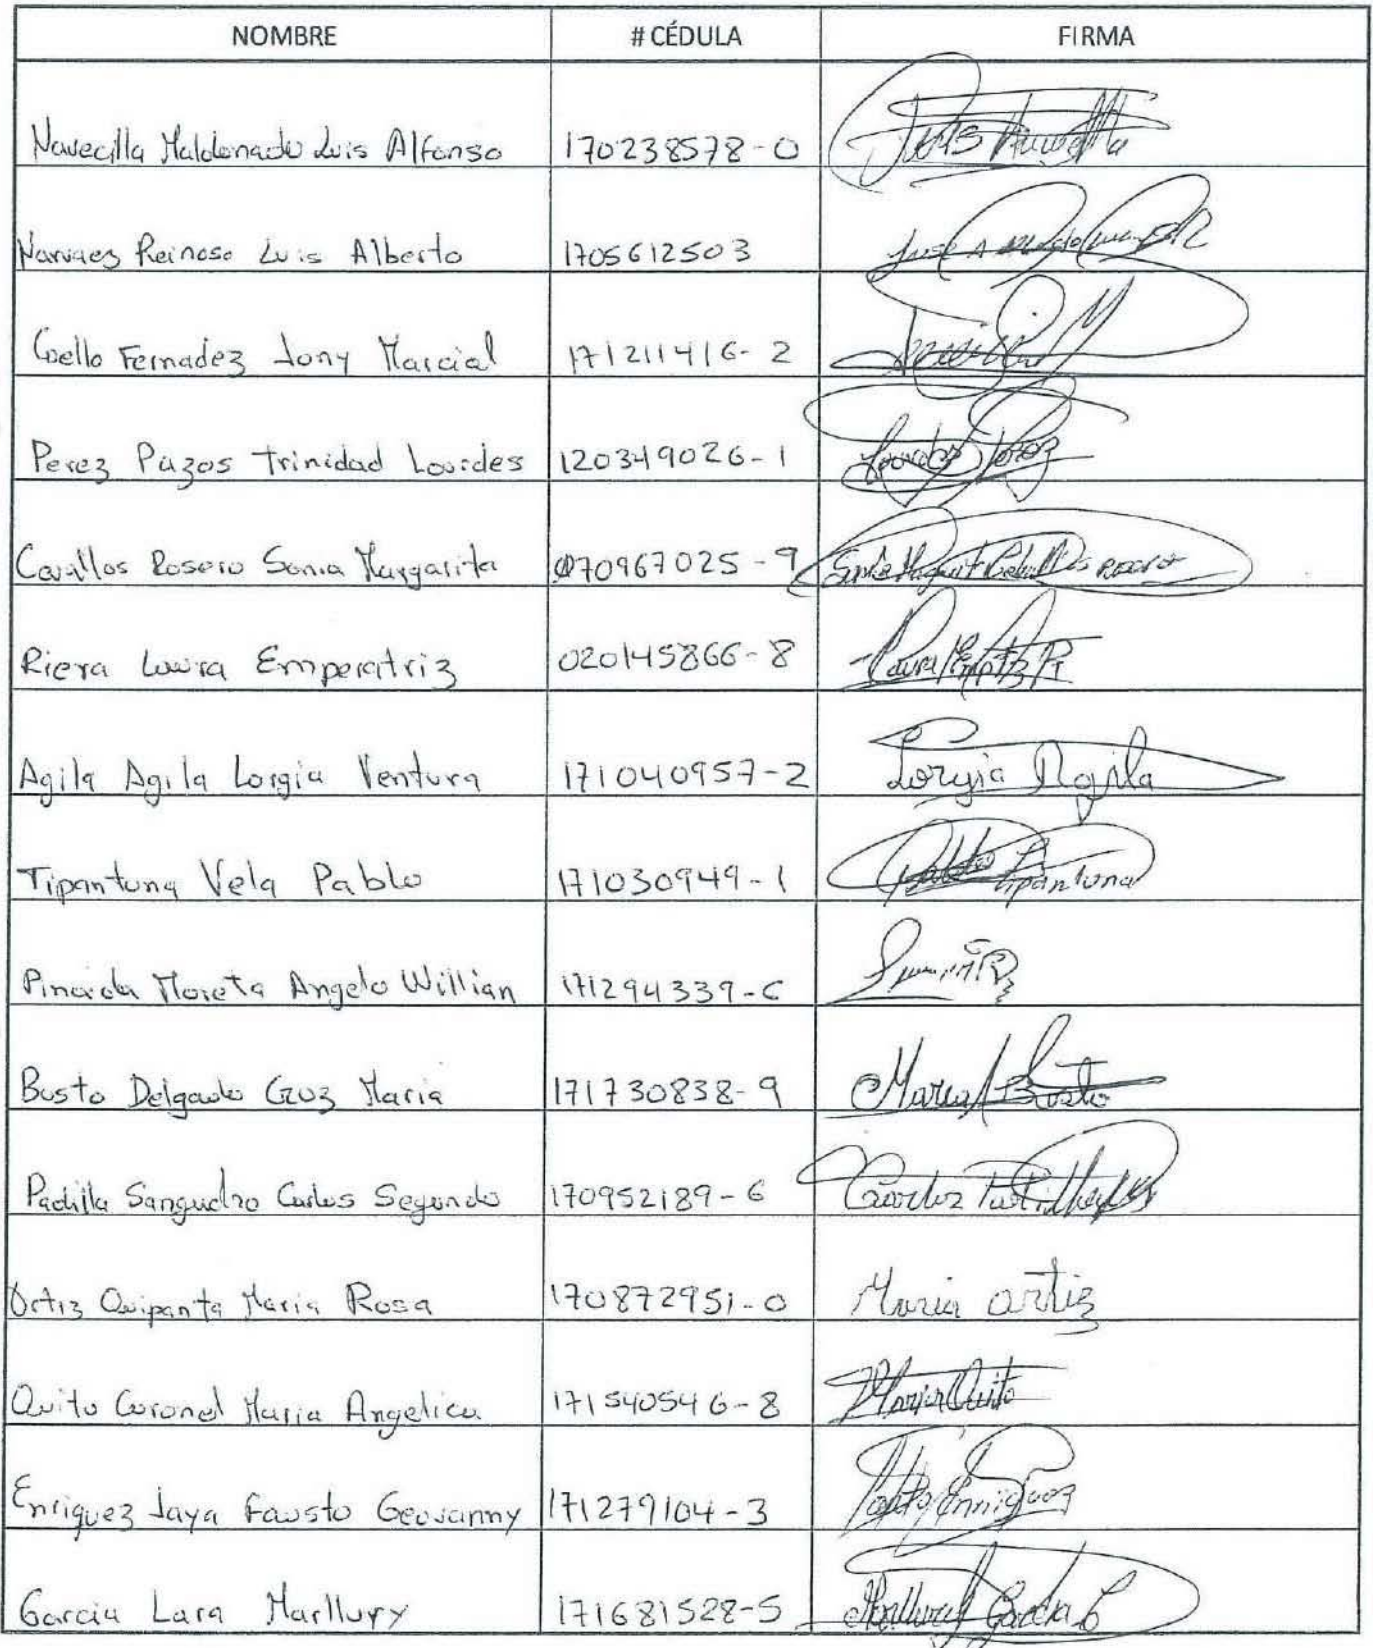 NOMBRE # CÉDULA FIRMA
Navecilla Maldonado Luis Alfonso 170238578-0
Narvaez Reinoso Luis Alberto 1705612503
Coello Fernadez Jony Marcial 171211416-2
Perez Pazos Trinidad Lourdes 120349026-1 Lourdes Perez
Cevallos Rosero Sonia Margarita 070967025-9
Riera Laura Emperatriz 020145866-8
Agila Agila Lorgia Ventura 171040957-2 Lorgia Agila
Tipantuna Vela Pablo 171030949-1 Pablo Tipantuna
Pineda Moreta Angelo Willian 171294339-6
Busto Delgado Cruz Maria 171730838-9 Maria Busto
Padilla Sangucho Carlos Segundo 170952189-6
Ortiz Quipanta Maria Rosa 170872951-0 Maria ortiz
Quito Coronel Maria Angelica 171540546-8 Maria Quito
Enriquez Jaya Fausto Geovanny 171279104-3
Garcia Lara Marllury 171681528-5 Marllury Garcia L